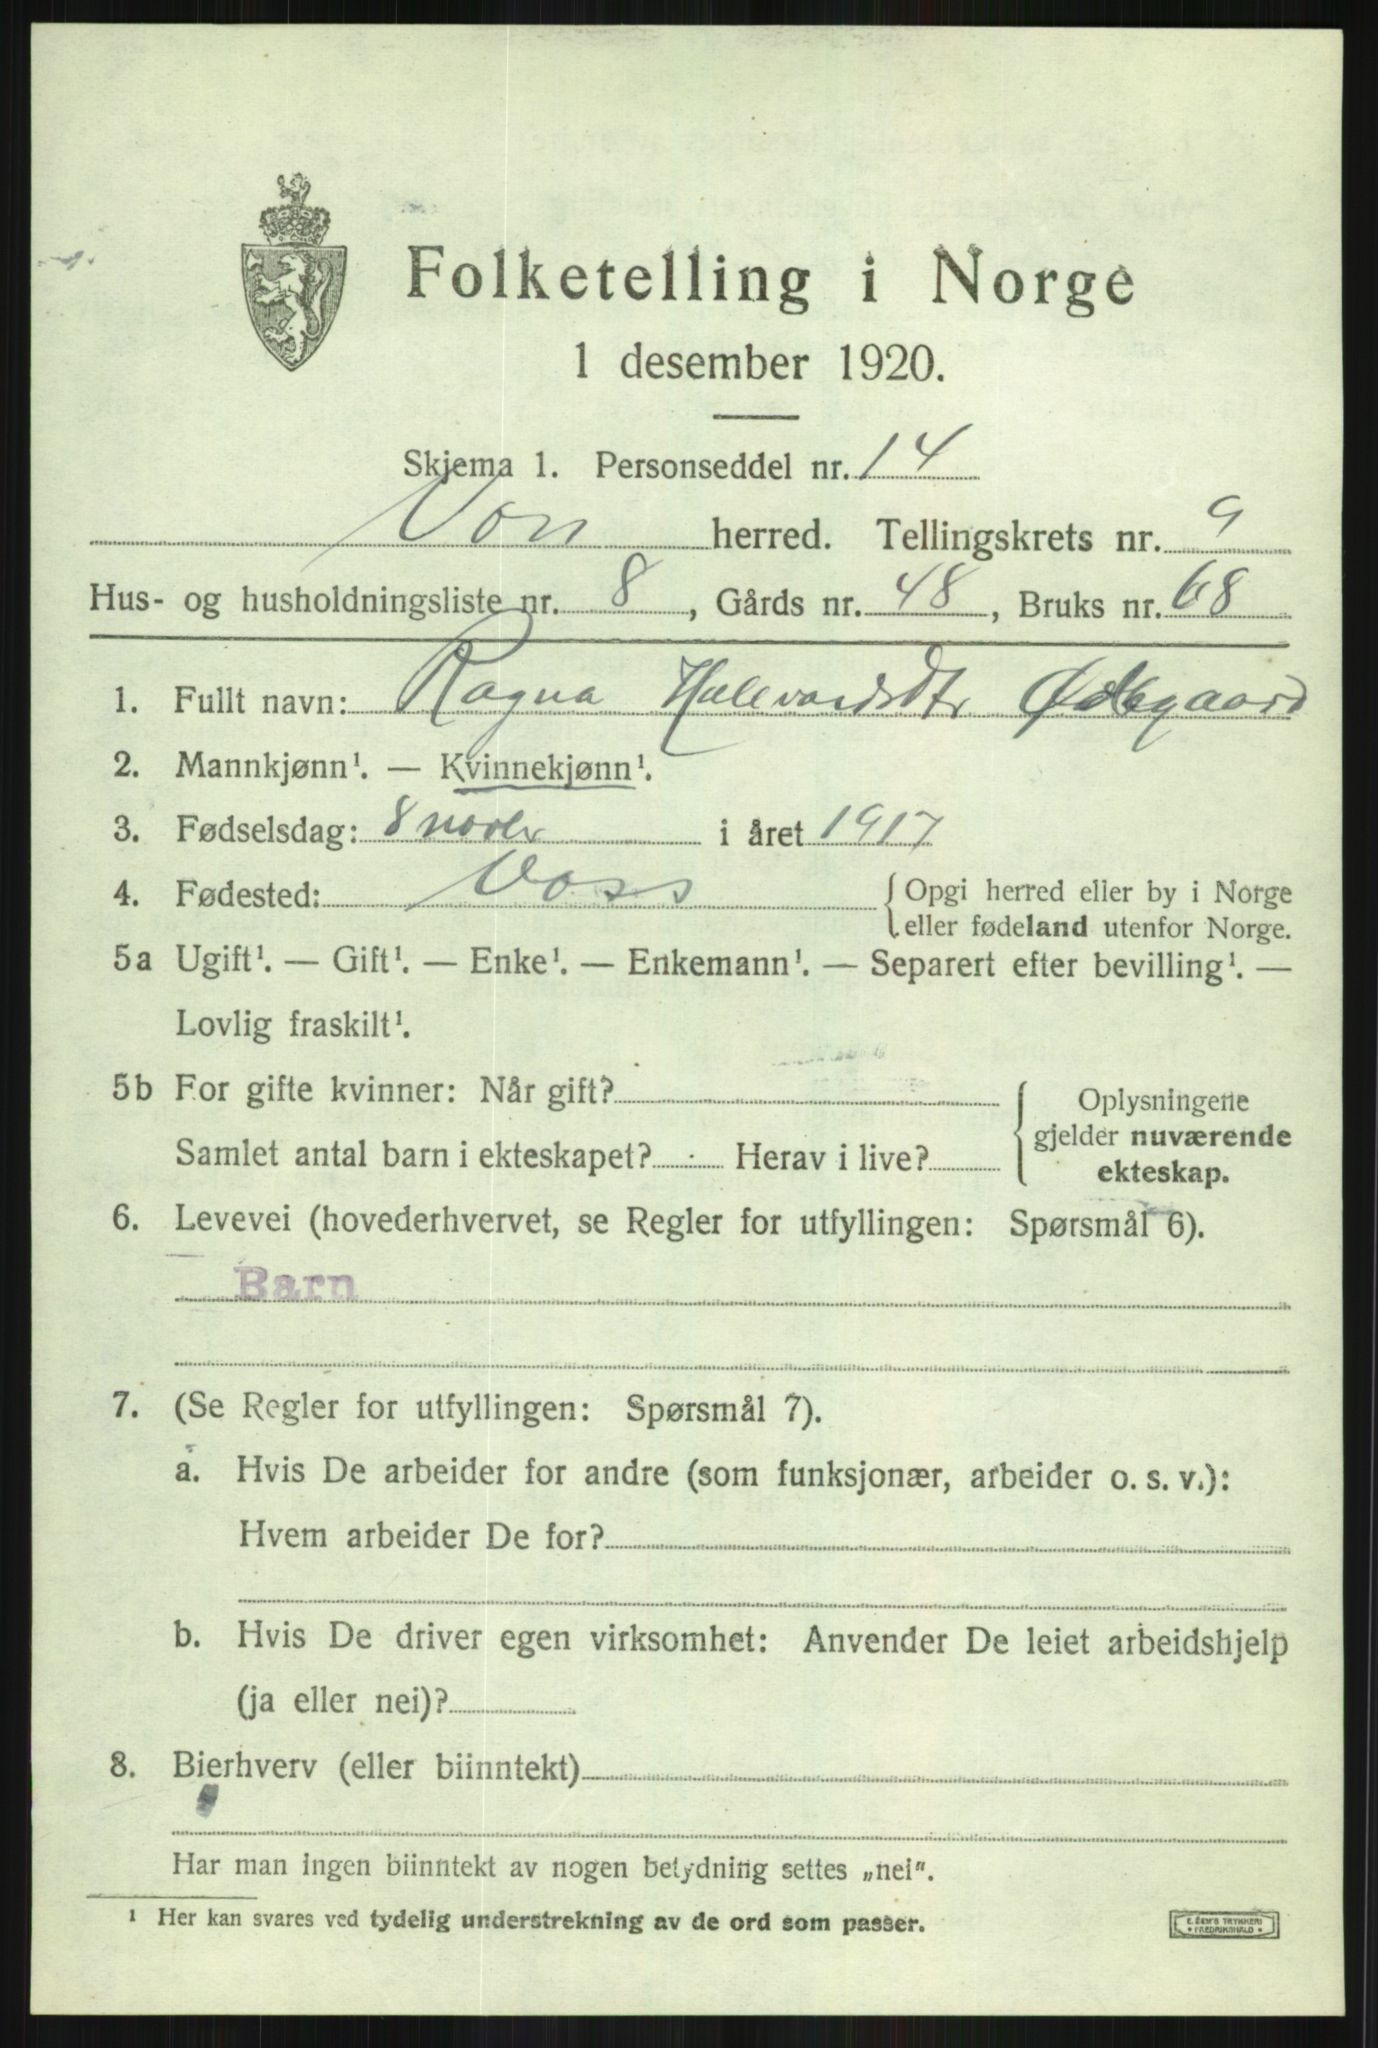 Folketelling i Norge
1 desember 1920.
Skjema 1. Personseddel nr. 14
Voss herred. Tellingskrets nr. 9
Hus- og husholdningsliste nr. 8, Gårds nr. 48, Bruks nr. 68
1. Fullt navn: Ragna Halvardsdtr Ødegaard
2. Mannkjønn¹. — Kvinnekjønn¹.
3. Fødselsdag: 8 novbr i året 1917
4. Fødested: Voss { Opgi herred eller by i Norge
eller fødeland utenfor Norge.
5a Ugift¹. — Gift¹. — Enke¹. — Enkemann¹. — Separert efter bevilling¹. —
Lovlig fraskilt¹.
5b For gifte kvinner: Når gift?
Samlet antal barn i ekteskapet? Herav i live?
Oplysningene
gjelder nuværende
ekteskap.
6. Levevei (hovederhvervet, se Regler for utfyllingen: Spørsmål 6).
Barn
7. (Se Regler for utfyllingen: Spørsmål 7).
a. Hvis De arbeider for andre (som funksjonær, arbeider o. s. v.):
Hvem arbeider De for?
b. Hvis De driver egen virksomhet: Anvender De leiet arbeidshjelp
(ja eller nei)?
8. Bierhverv (eller biinntekt)
Har man ingen biinntekt av nogen betydning settes „nei".
¹ Her kan svares ved tydelig understrekning av de ord som passer.
E. SEM'S TRYKKERI
FREDRIKSHALD